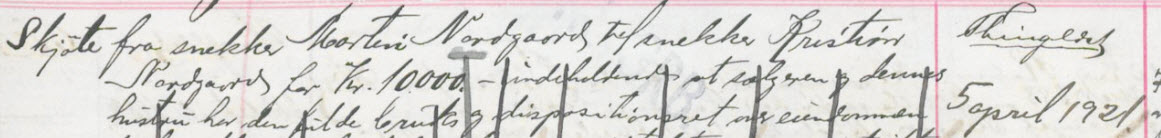 Skjøte fra snekker Martin Nordgaard til snekker Kristian
Nordgaard for Kr. 10000.- indeholdende at sælgeren og dennes
hustru har den fulde bruks og dispositionsret over eiendommen
Thinglæst
5 april 1921